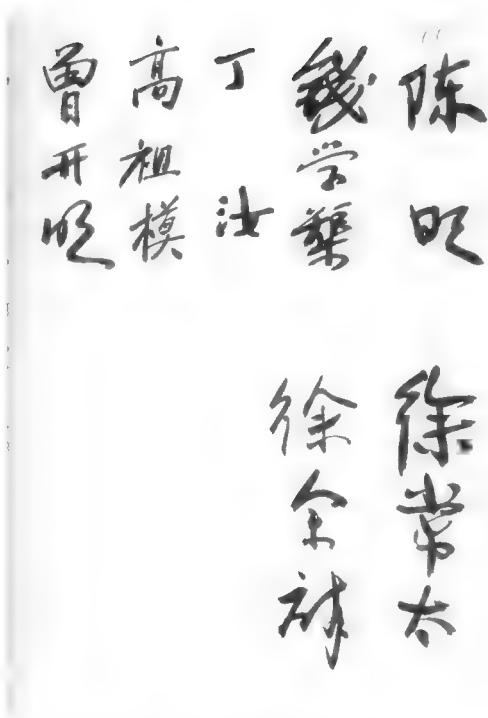 陈明
钱学
丁汝
高祖模
曾开明
徐常太
徐余祥